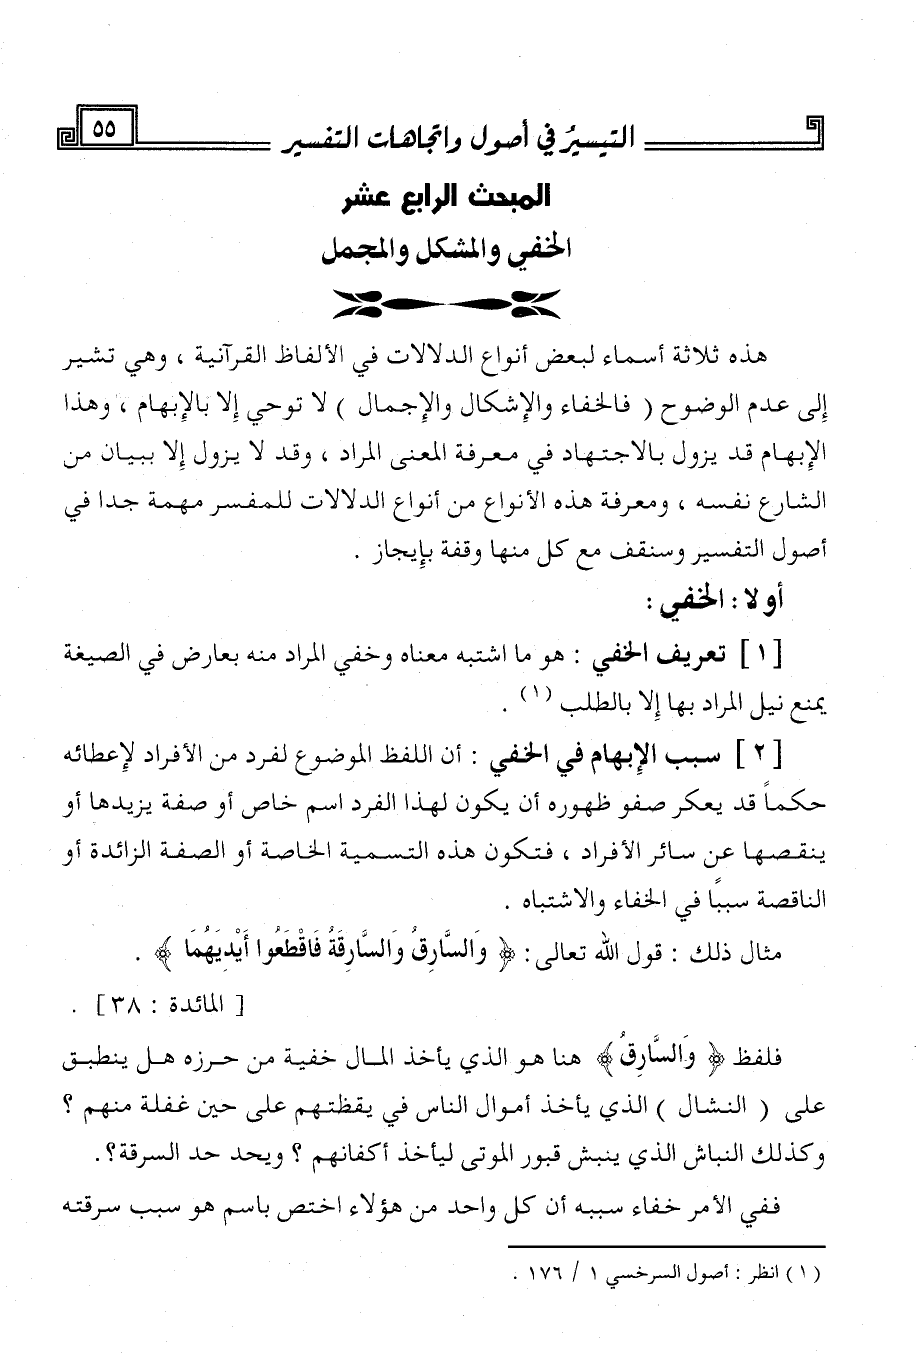 ٥٥
التيسيرُ في أصول واتجاهات التفسير
المبحث الرابع عشر
الخفي والمشكل والمجمل
هذه ثلاثة أسماء لبعض أنواع الدلالات في الألفاظ القرآنية ، وهي تشير
إلى عدم الوضوح ( فالخفاء والإشكال والإجمال ) لا توحي إلا بالإبهام ، وهذا
الإبهام قد يزول بالاجتهاد في معرفة المعنى المراد ، وقد لا يزول إلا ببيان من
الشارع نفسه ، ومعرفة هذه الأنواع من أنواع الدلالات للمفسر مهمة جدا في
أصول التفسير وسنقف مع كل منها وقفة بإيجاز .
أولا : الخفي :
[ ١ ] تعريف الخفي : هو ما اشتبه معناه وخفي المراد منه بعارض في الصيغة
يمنع نيل المراد بها إلا بالطلب (١) .
[ ٢ ] سبب الإبهام في الخفي : أن اللفظ الموضوع لفرد من الأفراد لإعطائه
حكماً قد يعكر صفو ظهوره أن يكون لهذا الفرد اسم خاص أو صفة يزيدها أو
ينقصها عن سائر الأفراد ، فتكون هذه التسمية الخاصة أو الصفة الزائدة أو
الناقصة سببًا في الخفاء والاشتباه .
مثال ذلك : قول الله تعالى : ﴿ وَالسَّارِقُ وَالسَّارِقَةُ فَاقْطَعُوا أَيْدِيَهُمَا ﴾ .
[ المائدة : ٣٨ ] .
فلفظ ﴿ وَالسَّارِقُ ﴾ هنا هو الذي يأخذ المال خفية من حرزه هل ينطبق
على ( النشال ) الذي يأخذ أموال الناس في يقظتهم على حين غفلة منهم ؟
وكذلك النباش الذي ينبش قبور الموتى ليأخذ أكفانهم ؟ ويحد حد السرقة؟.
ففي الأمر خفاء سببه أن كل واحد من هؤلاء اختص باسم هو سبب سرقته
( ١ ) انظر : أصول السرخسي ١ / ١٧٦ .